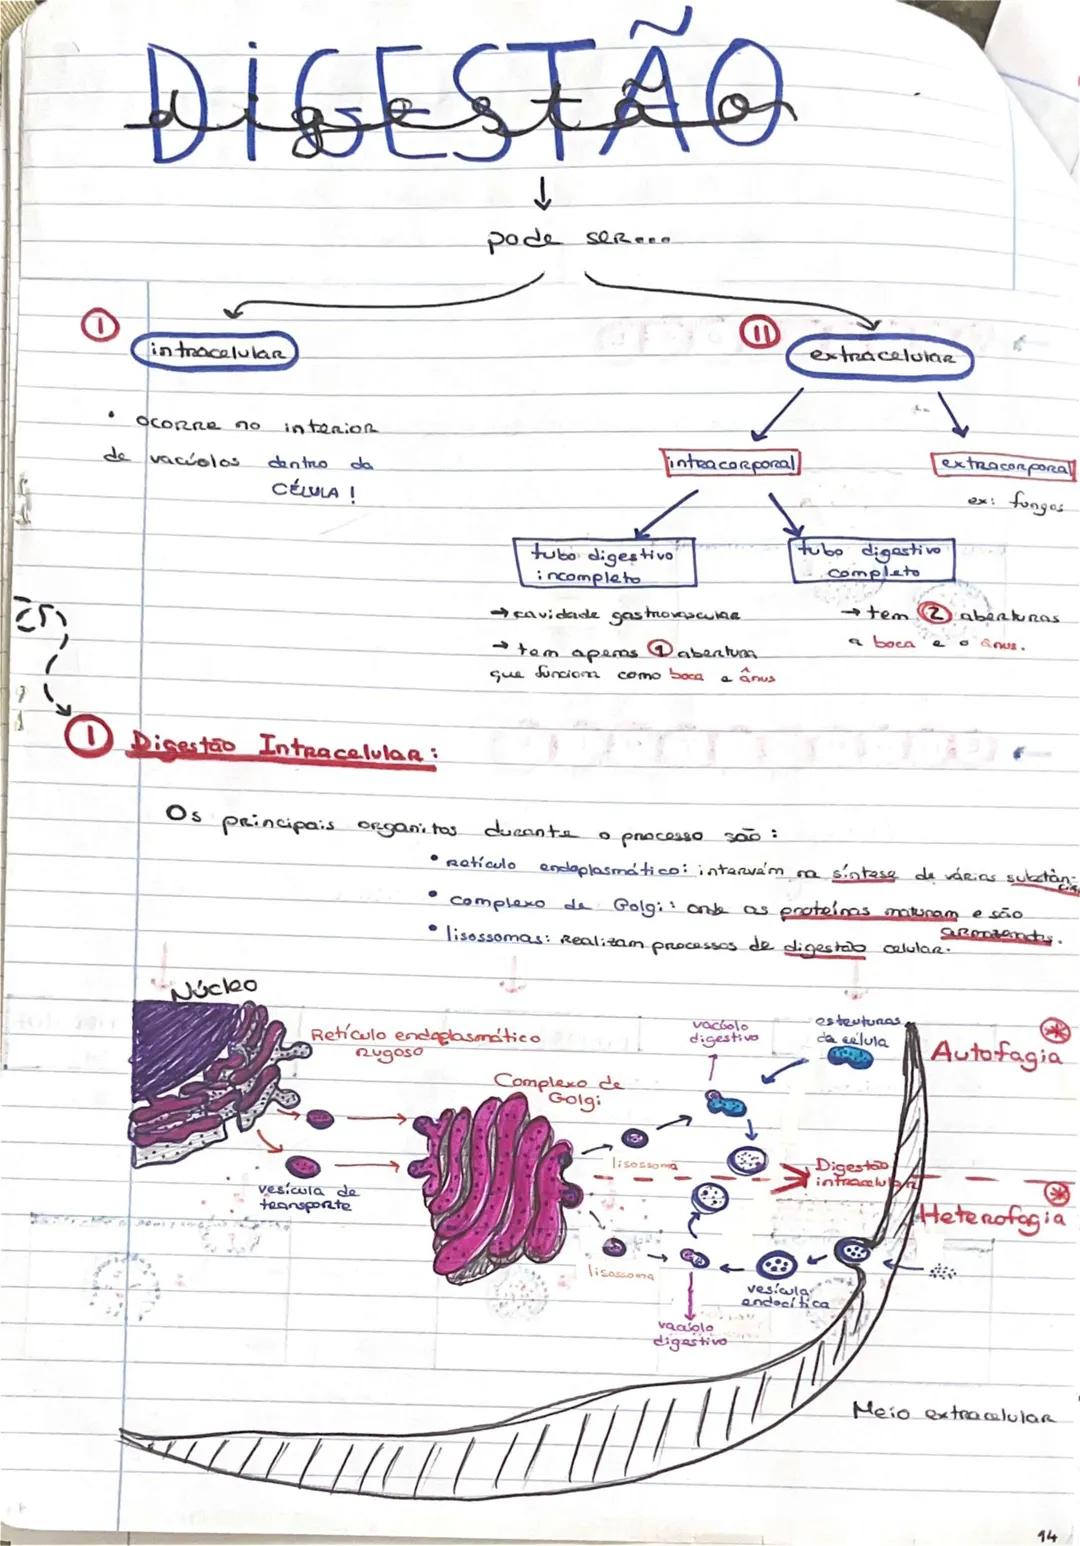 DIGESTÃO
digestão
pode ser...
I
intracelular
• ocorre no interior
de vacúolos dentro da
CÉLULA!
II
extracelular
intracorporal
extracorporal
ex: fungos
tubo digestivo
incompleto
→ cavidade gastrovascular
→ tem apenas 1 abertura
que funciona como boca e ânus
tubo digestivo
completo
→ tem 2 aberturas
a boca e o ânus.
I Digestão Intracelular:
Os principais organitos durante o processo são:
• retículo endoplasmático: intervém na síntese de várias substân-
cias
• complexo de Golgi: onde as proteínas maturam e são
armazenadas.
• lisossomas: Realizam processos de digestão celular.
Núcleo
Retículo endoplasmático
Rugoso
vesícula de
transporte
Complexo de
Golgi
vacúolo
digestivo
estruturas
da célula
Autofagia
lisossoma
Digestão
intracelular
Heterofagia
lisossoma
vesícula
endocítica
vacúolo
digestivo
Meio extracelular
14